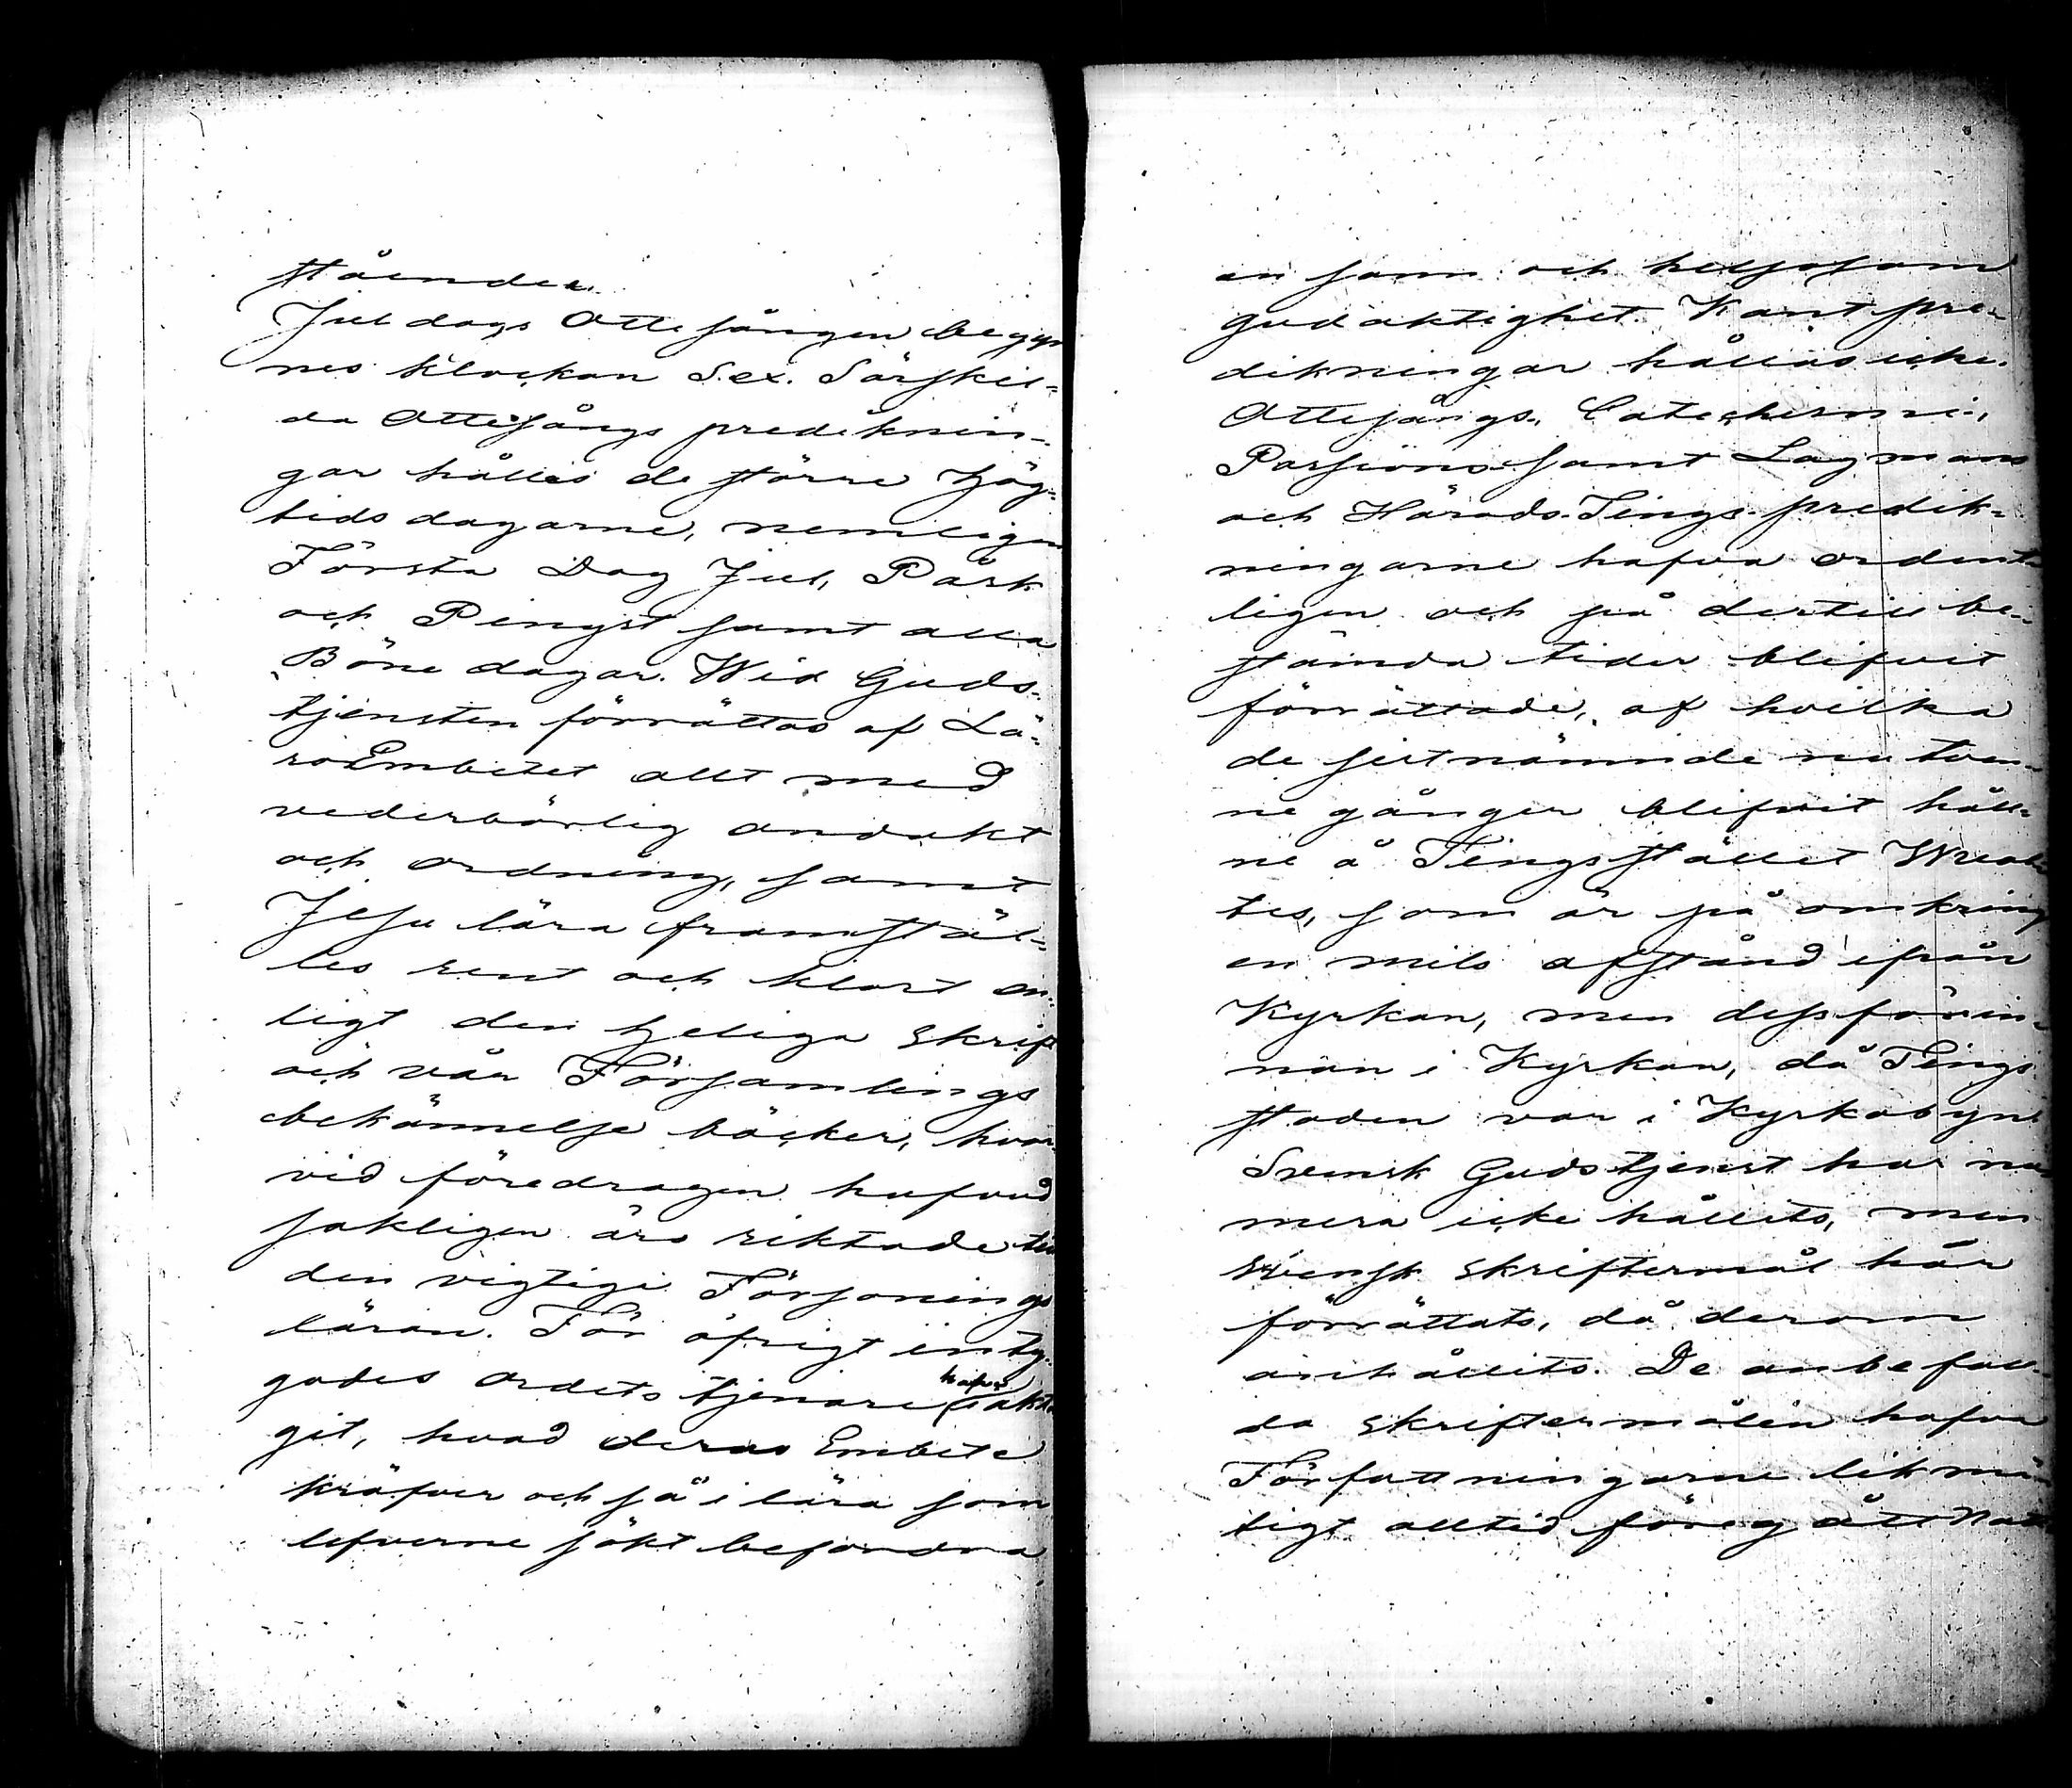 stående.
Juldags Ottesången begyn
nes klockan Sex. Särskil-
da Ottesångs prediknin-
gar hålles de större Hög-
tidsdagarne, nemligen
Första Dag Jul, Påsk
och Pingst samt alla
Böne dagar. Wid Guds-
tjensten förrättas af Lä-
roEmbetet allt med
vederbörlig andakt
och ordning, samt
Jesu lära framstäl-
les rent och klart en-
ligt den heliga skrift
och vår Församlings
bekännelse böcker, hvar
vid föredragen hufvud
sakligen äro riktade till
den vigtiga Försonings
läran. För öfrigt inty-
gades ordets tjenare hafva iaktta
git, hvad deras Embete
kräfver och så i lära som
lefverne sökt befordra
en sann och helsosam
gudaktighet. Kastpre-
dikningar hållas icke.
Ottesångs, Catechismi,
Passions samt Lagmans
och Härads Tings predik-
ningarne hafva ordent-
ligen och på dertill be-
stämda tider blifvit
förrättade, af hvilka
de sistnämnde nu tven-
ne gånger blifvit håll-
ne å Tingsstället
tes, som är på omkring
en mils afstånd ifrån
Kyrkan, men dessförin-
nan i Kyrkan, då Tings
staden var i Kyrkobyn
Svensk Gudstjenst har nu
mera icke hållits, men
svensk skriftermål har
förrättats, då derom
anhållits. De anbefall-
da skriftermålen hafva
Författningarne likmä
tigt alltid föregått Natt